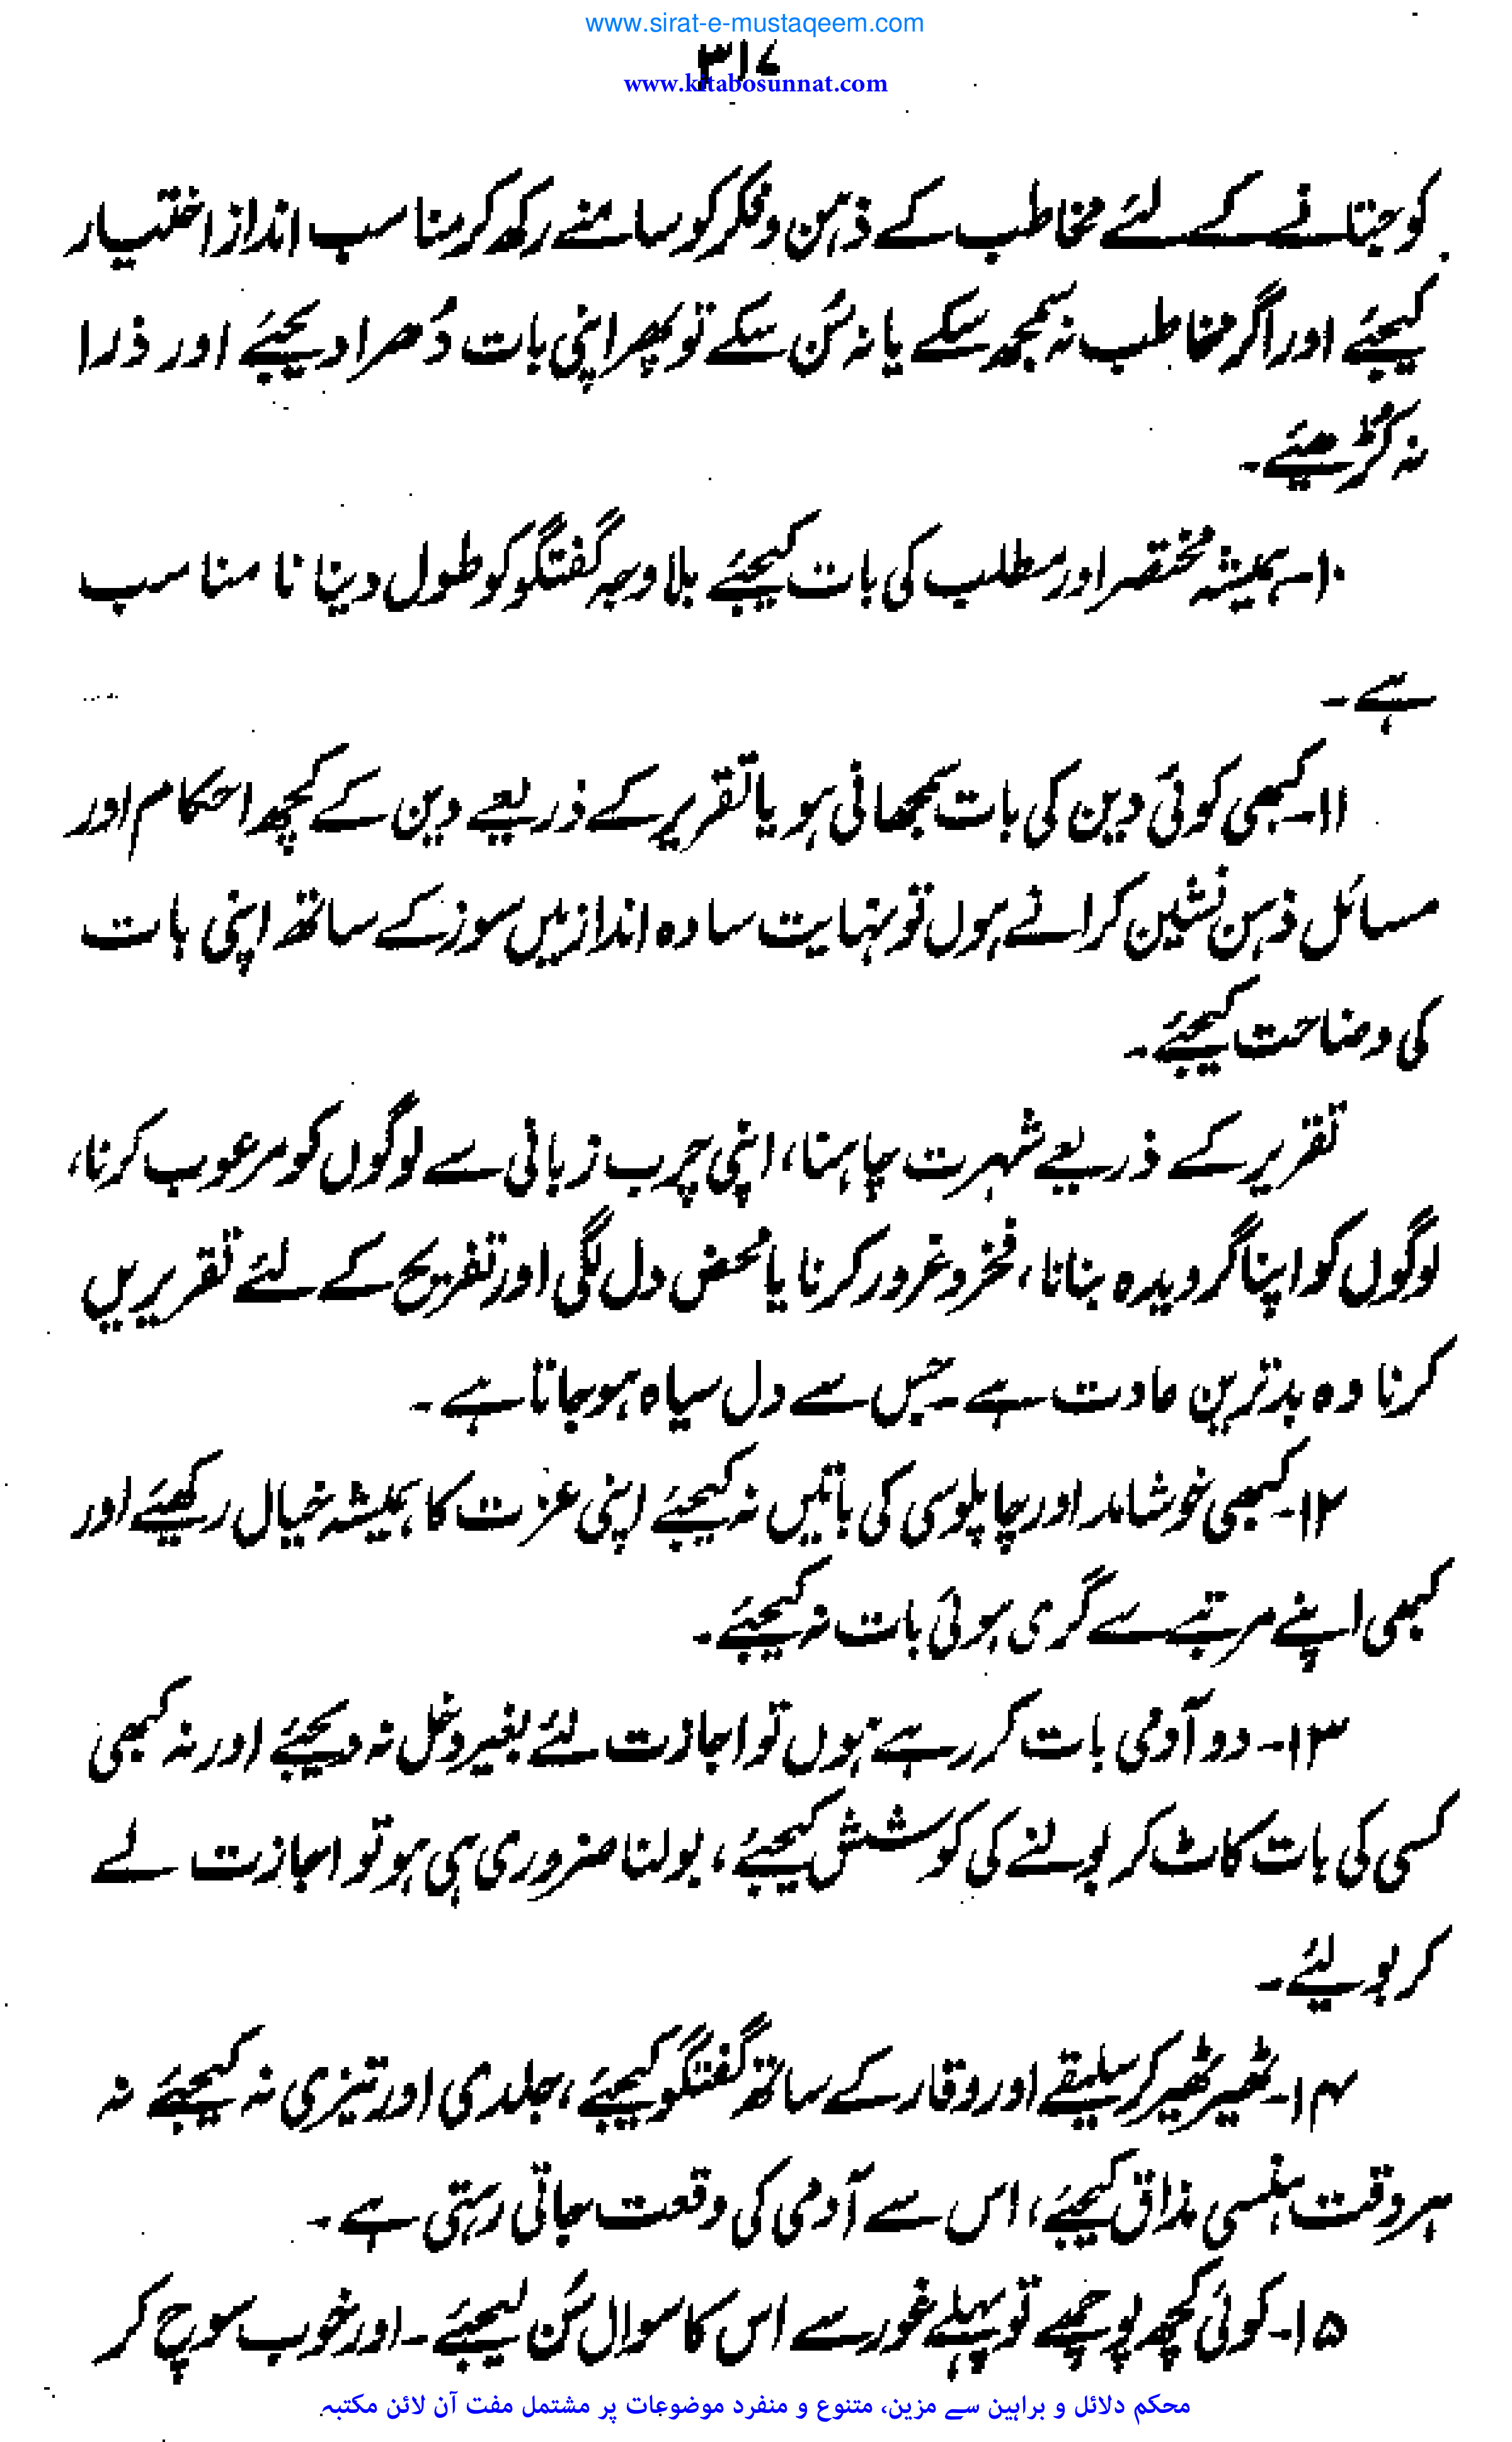 www.sirat-e-mustaqeem.com
۳۱۷
www.kitabosunnat.com
کو جتانے کے لئے مخاطب کے ذہن و فکر کو سامنے رکھ کر مناسب انداز اختیار
کیجئے اور اگر مخاطب نہ سمجھ سکے یا نہ سُن سکے تو پھر اپنی بات دُھرا دیجئے اور ذرا
نہ کُڑھیئے۔
۱۰۔ ہمیشہ مختصر اور مطلب کی بات کیجئے بلا وجہ گفتگو کو طول دینا نا مناسب
ہے۔
۱۱۔ کبھی کوئی دین کی بات سمجھانی ہو یا تقریر کے ذریعے دین کے کچھ احکام اور
مسائل ذہن نشین کرانے ہوں تو نہایت سادہ انداز میں سوز کے ساتھ اپنی بات
کی وضاحت کیجئے۔
تقریر کے ذریعے شہرت چاہنا، اپنی چرب زبانی سے لوگوں کو مرعوب کرنا،
لوگوں کو اپنا گرویدہ بنانا، فخر و غرور کرنا یا محض دل لگی اور تفریح کے لئے تقریریں
کرنا وہ بدترین عادت ہے۔ جس سے دل سیاہ ہو جاتا ہے۔
۱۲۔ کبھی خوشامد اور چاپلوسی کی باتیں نہ کیجئے اپنی عزت کا ہمیشہ خیال رکھیئے اور
کبھی اپنے مرتبے سے گری ہوئی بات نہ کیجئے۔
۱۳۔ دو آدمی بات کر رہے ہوں تو اجازت لئے بغیر دخل نہ دیجئے اور نہ کبھی
کسی کی بات کاٹ کر بولنے کی کوشش کیجئے، بولنا ضروری ہی ہو تو اجازت لے
کر بولیئے۔
۱۴۔ ٹھیر ٹھیر کر سلیقے اور وقار کے ساتھ گفتگو کیجئے، جلدی اور تیزی نہ کیجئے نہ
ہر وقت ہنسی مذاق کیجئے، اس سے آدمی کی وقعت جاتی رہتی ہے۔
۱۵۔ کوئی کچھ پوچھے تو پہلے غور سے اس کا سوال سُن لیجئے۔ اور خوب سوچ کر
محکم دلائل و براہین سے مزین، متنوع و منفرد موضوعات پر مشتمل مفت آن لائن مکتبہ